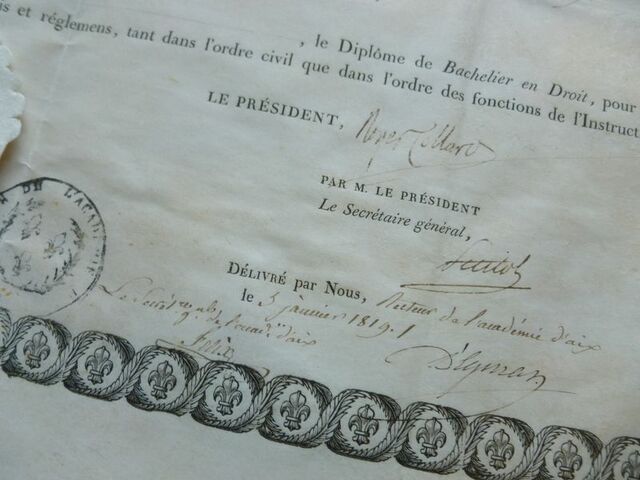 is et réglemens, tant dans l'ordre civil que dans l'ordre des fonctions de l'Instruct
, le Diplôme de Bachelier en Droit, pour
LE PRÉSIDENT, Royer Collard
PAR M. LE PRÉSIDENT
Le Secrétaire général,
DÉLIVRÉ par Nous, Recteur de l'académie d'aix
le 5 janvier 1819.
Le Secrét. de l'acad. d'aix
DE L'ACADÉMIE